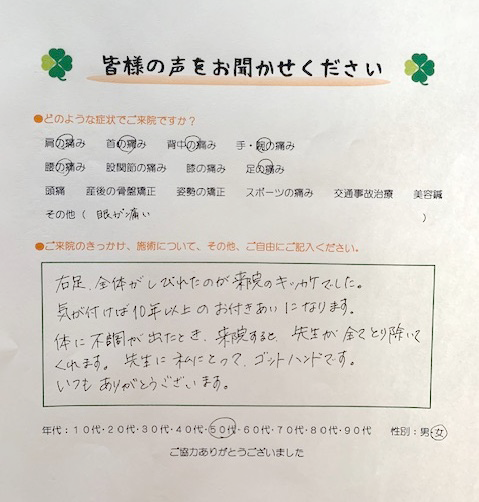 皆様の声をお聞かせください
●どのような症状でご来院ですか？
肩の痛み 首の痛み 背中の痛み 手・腕の痛み
腰の痛み 股関節の痛み 膝の痛み 足の痛み
頭痛 産後の骨盤矯正 姿勢の矯正 スポーツの痛み 交通事故治療 美容鍼
その他（ 眼が痛い ）
●ご来院のきっかけ、施術について、その他、ご自由にご記入ください。
右足、全体がしびれたのが来院のキッカケでした。
気が付けば10年以上のお付きあいになります。
体に不調が出たとき、来院すると、先生が全てとり除いて
くれます。先生は私にとって、ゴットハンドです。
いつもありがとうございます。
年代：１０代・２０代・３０代・４０代・５０代・６０代・７０代・８０代・９０代 性別：男・女
ご協力ありがとうございました